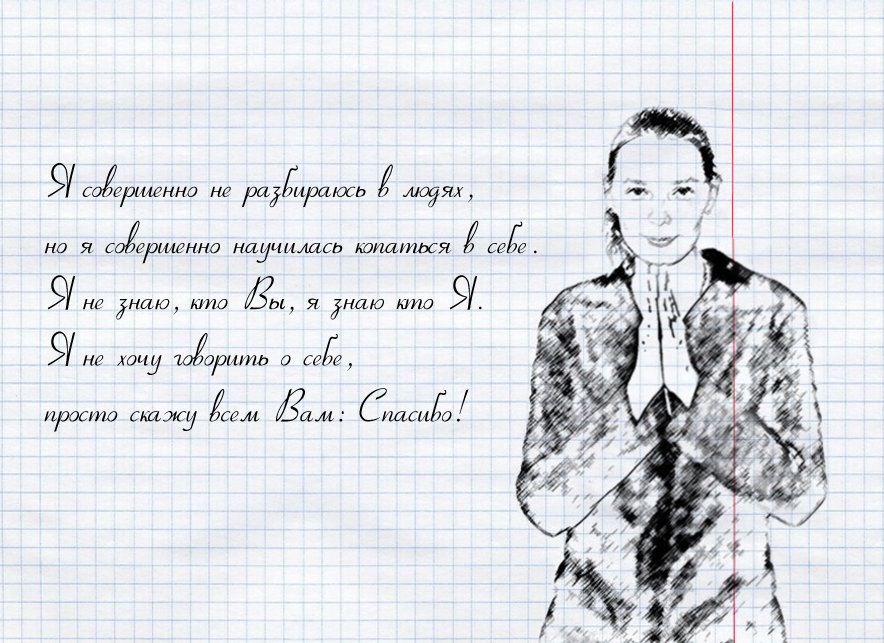 Я совершенно не разбираюсь в людях,
но я совершенно научилась копаться в себе.
Я не знаю, кто Вы, я знаю кто Я.
Я не хочу говорить о себе,
просто скажу всем Вам: Спасибо!